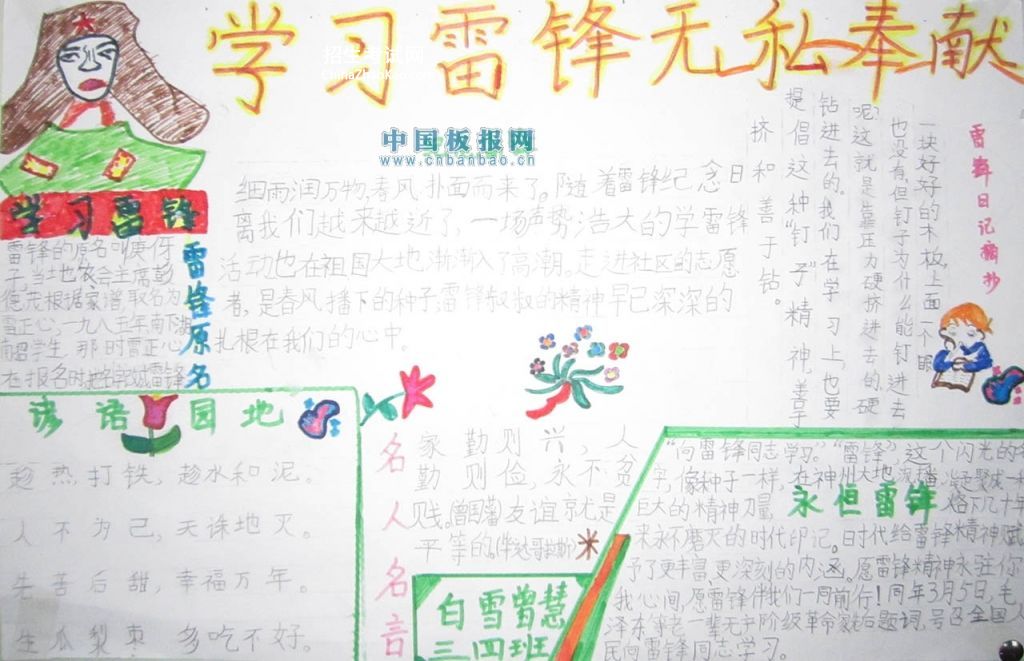 学习雷锋无私奉献
招生考试网
ChinaZhaoKao.com
中国板报网
www.cnbanbao.cn
学习雷锋
雷锋原名
雷锋的原名叫庚伢
子,当地农会主席彭
德茂根据家谱取名为
雷正心,一九八五年,南下湖
南招学生,那时雷正心
在报名时把名字改成雷锋
细雨润万物,春风扑面而来了。随着雷锋纪念日
离我们越来越近了,一场声势浩大的学雷锋
活动也在祖国大地,渐渐入了高潮。走进社区的志愿
者,是春风播下的种子,雷锋叔叔的精神早已深深的
扎根在我们的心中。
雷锋日记摘抄
一块好好的木板,上面一个眼
也没有,但钉子为什么能钉进去
呢?这就是靠压力硬挤进去的,硬
钻进去的。我们在学习上,也要
提倡这种"钉子"精神,善于
挤和善于钻。
谚语园地
趁热打铁,趁水和泥。
人不为己,天诛地灭。
先苦后甜,幸福万年。
生瓜梨枣 多吃不好。
名人名言
家勤则兴,人
勤则俭,永不贫
贱。曾国藩友谊就是
平等的。
白雪曾慧
三四班
永恒雷锋
"向雷锋同志学习。""雷锋"这个闪光的
字,像种子一样,在神州大地
巨大的精神力量,烙下几十年
来永不磨灭的时代印记。时代给雷锋精神赋
予了更丰富更深刻的内涵。愿雷锋精神永驻你
我心间,愿雷锋伴我们一同前行!同年3月5日,毛
泽东等老一辈无产阶级革命家题词,号召全国人
民向雷锋同志学习。